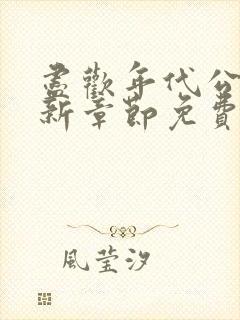 盡歡年代公
新章節免費
風莹汐